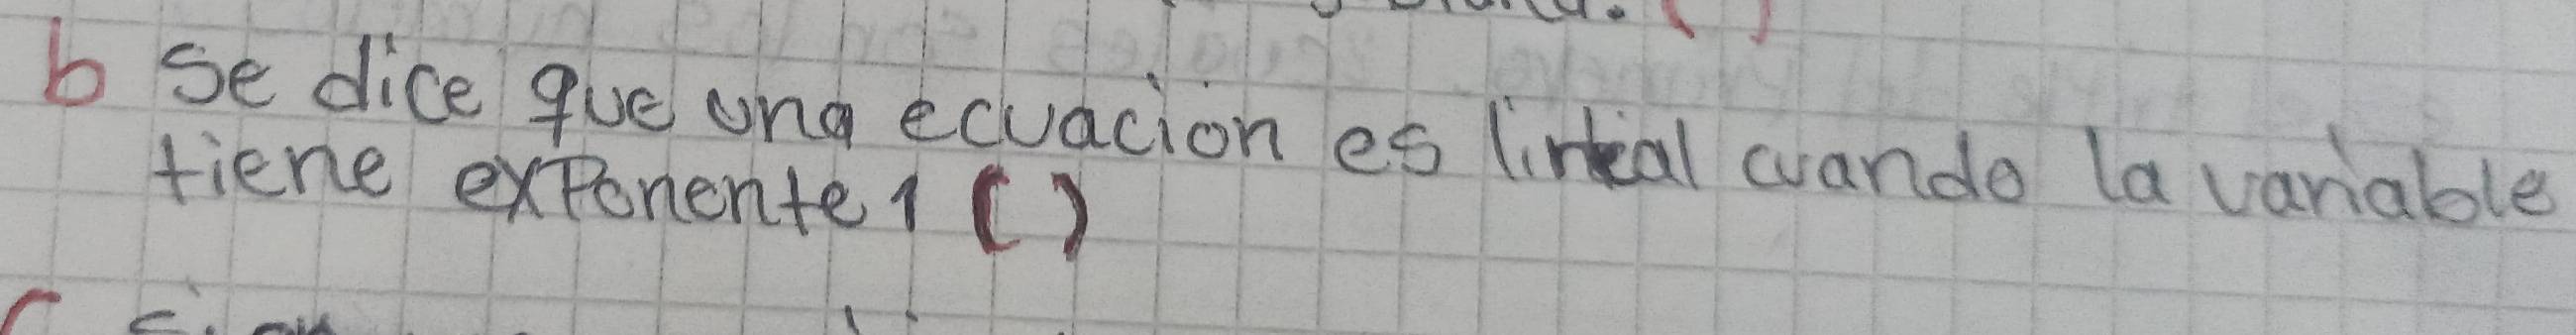 b Se dice que una ecuacion es lineal cuando la variable
tiene exponente 1 ( )